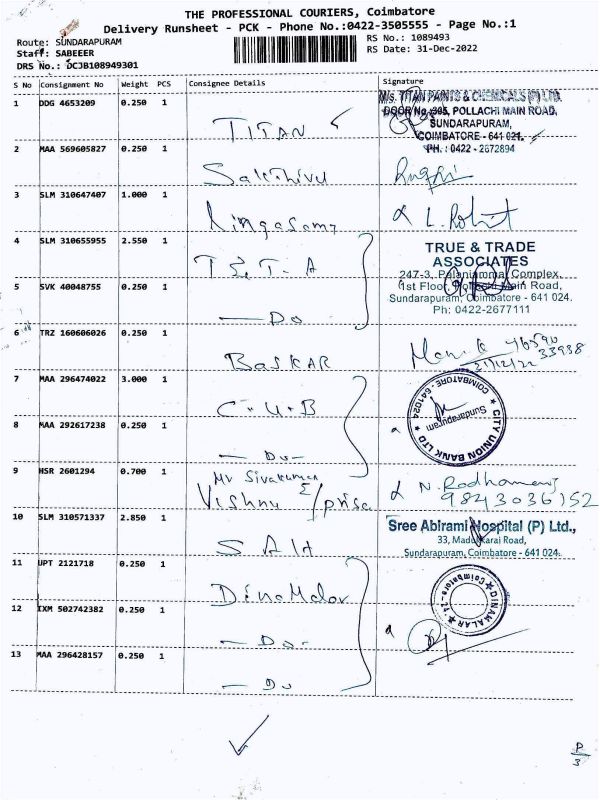 THE PROFESSIONAL COURIERS, Coimbatore
Delivery Runsheet - PCK - Phone No.:0422-3505555 - Page No.:1
Route: SUNDARAPURAM
RS No.: 1089493
Staff: SABEEER
RS Date: 31-Dec-2022
DRS No.: DCJB108949301
S No Consignment No Weight PCS Consignee Details Signature
1 DDG 4653209 0.250 1 TITAN
M/s. TITAN PAINTS & CHEMICALS (P) LTD.
DOOR No.:395, POLLACHI MAIN ROAD,
SUNDARAPURAM,
COIMBATORE - 641 021.
PH. : 0422 - 2672894
2 MAA 569605827 0.250 1 Sakthivel
3 SLM 310647407 1.000 1 Lingasamy L. Rohit
4 SLM 310655955 2.550 1 T & T - A
TRUE & TRADE
ASSOCIATES
247-3, Palaniammal Complex,
1st Floor, Pollachi Main Road,
Sundarapuram, Coimbatore - 641 024.
Ph: 0422-2677111
5 SVK 40048755 0.250 1 — Do
6 TRZ 160606026 0.250 1 BASKAR
31/12/22
7 MAA 296474022 3.000 1 C.U.B
CITY UNION BANK LTD
COIMBATORE - 641024
Sundarapuram
8 MAA 292617238 0.250 1 — Do -
9 HSR 2601294 0.700 1 Mr Sivakumar
Vishnu E/prise
9843036152
10 SLM 310571337 2.850 1 SAH
Sree Abirami Hospital (P) Ltd.,
33, Madukkarai Road,
Sundarapuram, Coimbatore - 641 024.
11 UPT 2121718 0.250 1 Dinamalar
DINAMALAR
Coimbatore-
12 IXM 502742382 0.250 1 — Do -
13 MAA 296428157 0.250 1 — Do
P
3